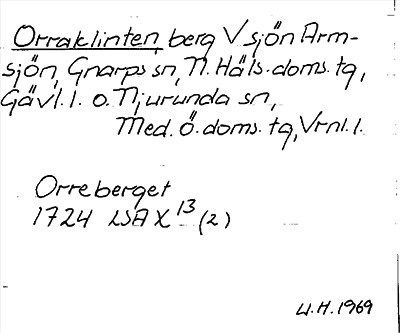 Orraklinten, berg V sjön Arm-
sjön, Gnarps sn, N. Häls. doms. tg,
Gävl. l. o. Njurunda sn,
Med. ö. doms. tg, Vrnl. l.
Orreberget
1724 LSA X 13 (2)
W.H. 1969